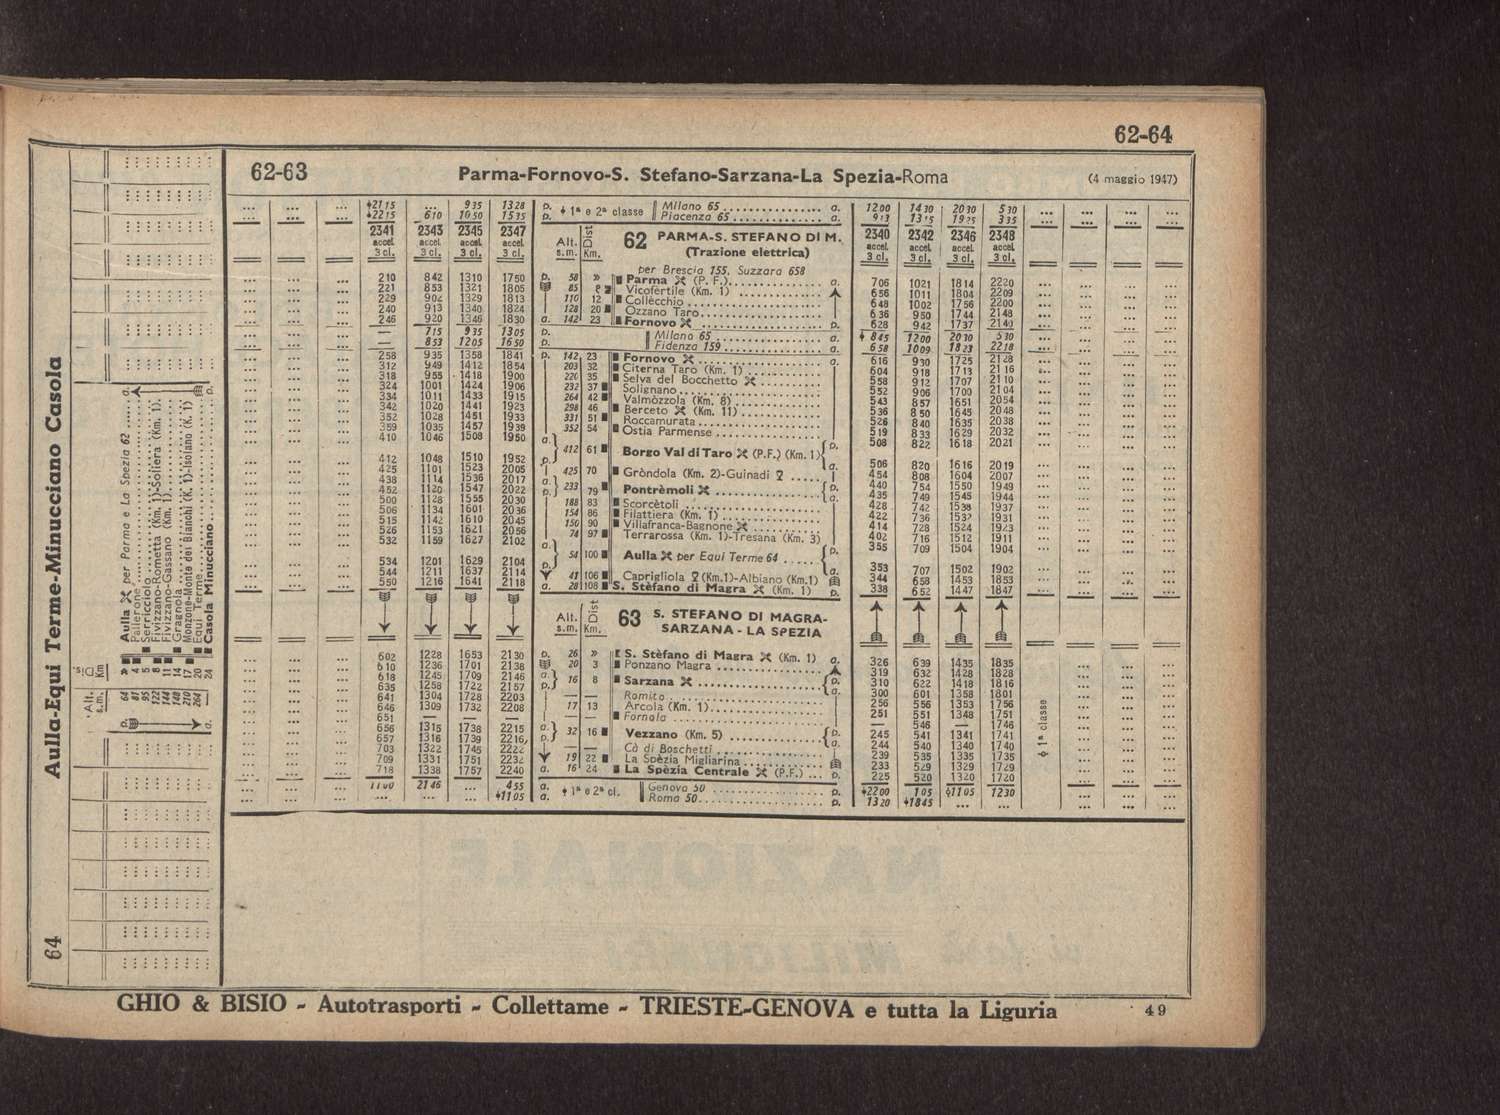 62-64
62-63 Parma-Fornovo-S. Stefano-Sarzana-La Spezia-Roma (4 maggio 1947)
... ... ... 2115 ... 935 1328 p. 1ª e 2ª classe Milano 65 ... a. 1200 1430 2030 530 ... ... ... ...
... ... ... 2215 610 1050 1535 p. Piacenza 65 ... a. 913 1315 1925 335 ... ... ... ...
2341 2343 2345 2347 Alt. s.m. Dist Km. 62 PARMA-S. STEFANO DI M. 2340 2342 2346 2348
accel. accel. accel. accel. (Trazione elettrica) accel. accel. accel. accel.
3 cl. 3 cl. 3 cl. 3 cl. 3 cl. 3 cl. 3 cl. 3 cl.
per Brescia 155, Suzzara 658
210 842 1310 1750 p. 58 » Parma (P. F.) ... a. 706 1021 1814 2220
221 853 1321 1805 85 Vicofertile (Km. 1) ... 656 1011 1804 2209
229 902 1329 1813 110 12 Collècchio ... 648 1002 1756 2200
240 913 1340 1824 128 20 Ozzano Taro ... 636 950 1744 2148
246 920 1346 1830 a. 142 23 Fornovo ... p. 628 942 1737 2140
— 715 935 1305 p. Milano 65 ... a. 845 1200 2030 530
— 853 1205 1650 p. Fidenza 159 ... a. 658 1009 1823 2218
258 935 1358 1841 p. 142 23 Fornovo ... a. 616 930 1725 2128
312 949 1412 1854 203 32 Citerna Taro (Km. 1) ... 604 918 1713 2116
318 955 1418 1900 220 35 Selva del Bocchetto ... 558 912 1707 2110
324 1001 1424 1906 232 37 Solignano ... 552 906 1700 2104
334 1011 1433 1915 264 42 Valmòzzola (Km. 8) ... 543 857 1651 2054
342 1020 1441 1923 298 46 Berceto (Km. 11) ... 536 850 1645 2048
352 1028 1451 1933 331 51 Roccamurata ... 526 840 1635 2038
359 1035 1457 1939 352 54 Ostia Parmense ... 519 833 1629 2032
410 1046 1508 1950 a. p. 508 822 1618 2021
412 61 Borgo Val di Taro (P.F.) (Km. 1)
412 1048 1510 1952 p. a. 506 820 1616 2019
425 1101 1523 2005 425 70 Gròndola (Km. 2)-Guinadi ... 454 808 1604 2007
438 1114 1536 2017 a. p. 440 754 1550 1949
233 79 Pontrèmoli ...
452 1120 1547 2022 p. a. 435 749 1545 1944
500 1128 1555 2030 188 83 Scorcètoli ... 428 742 1538 1937
506 1134 1601 2036 154 86 Filattiera (Km. 1) ... 422 736 1931
515 1142 1610 2045 150 90 Villafranca-Bagnone ... 414 728 1524 1923
526 1153 1621 2056 74 97 Terrarossa (Km. 1)-Tresana (Km. 3) 402 716 1512 1911
532 1159 1627 2102 a. p. 355 709 1504 1904
54 100 Aulla per Equi Terme 64 ...
534 1201 1629 2104 p. a. 353 707 1502 1902
544 1211 1637 2114 41 106 Caprigliola (Km.1)-Albiano (Km.1) 344 658 1453 1853
550 1216 1641 2118 a. 28 108 S. Stèfano di Magra (Km. 1) p. 338 652 1447 1847
Alt. s.m. Dist Km. 63 S. STEFANO DI MAGRA-
SARZANA - LA SPEZIA
602 1228 1653 2130 p. 26 » S. Stèfano di Magra (Km. 1) a. 326 639 1435 1835
610 1236 1701 2138 20 3 Ponzano Magra ... 319 632 1428 1828
618 1245 1709 2146 a. p. 310 622 1418 1816
16 8 Sarzana ...
635 1258 1722 2157 p. a. 300 601 1358 1801
641 1304 1728 2203 — — Romito ... 256 556 1353 1756
646 1309 1732 2208 17 13 Arcola (Km. 1) ... 251 551 1348 1751
651 — — — — — Fornola ... — 546 — 1746
656 1315 1738 2215 a. p. 245 541 1341 1741
32 16 Vezzano (Km. 5) ...
657 1316 1739 2216 p. a. 244 540 1340 1740
703 1322 1745 2222 — — Cà di Boschetti ... 239 535 1335 1735
709 1331 1751 2232 19 22 La Spèzia Migliarina ... 233 529 1329 1729
718 1338 1757 2240 a. 16 24 La Spèzia Centrale (P.F.) ... p. 225 520 1320 1720
1100 2146 ... 455 a. 1ª e 2ª cl. Genova 50 ... p. 2200 105 1105 1230
... ... ... 1105 a. Roma 50 ... p. 1320 1845 ... ...
1ª classe
64 Aulla-Equi Terme-Minucciano Casola
Alt. s.m. Dis. Km
64 » Aulla per Parma e La Spezia 62 ... a.
81 4 Pallerone ...
95 5 Serricciolo ...
122 8 Fivizzano-Rometta (Km. 1)-Soliera (Km. 1).
144 11 Fivizzano-Gassano (Km. 1) ...
148 14 Gragnola ...
210 17 Monzone-Monte dei Bianchi (K. 1)-Isolano (K. 1)
264 20 Equi Terme ...
24 Casola Minucciano ... p.
GHIO & BISIO - Autotrasporti - Collettame - TRIESTE-GENOVA e tutta la Liguria
49